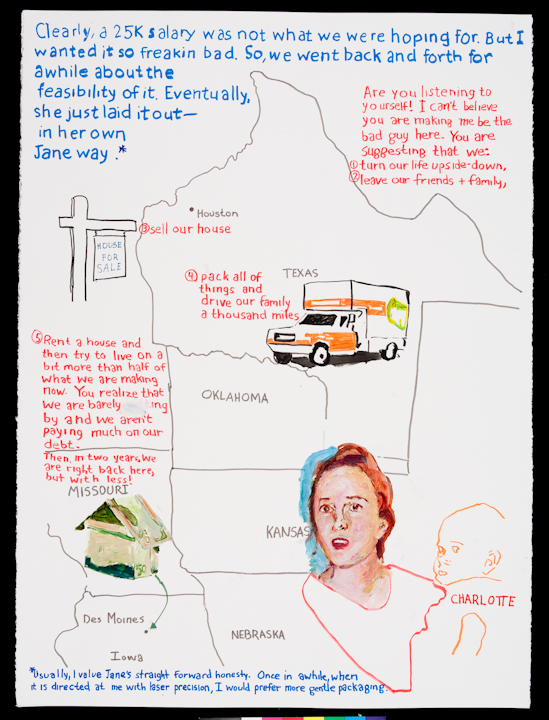 Clearly, a 25K salary was not what we were hoping for. But I
wanted it so freakin bad. So, we went back and forth for
awhile about the
feasibility of it. Eventually,
she just laid it out—
in her own
Jane way.*
Are you listening to
yourself! I can't believe
you are making me be the
bad guy here. You are
suggesting that we:
① turn our life upside-down,
② leave our friends + family,
Houston
③ sell our house
HOUSE
FOR
SALE
④ pack all of
things and
drive our family
a thousand miles
TEXAS
⑤ Rent a house and
then try to live on a
bit more than half of
what we are making
now. You realize that
we are barely ting
by and we aren't
paying much on our
debt.
Then, in two years, we
are right back here,
but with less!
OKLAHOMA
MISSOURI
KANSAS
50
CHARLOTTE
Des Moines
Iowa
NEBRASKA
*Usually, I value Jane's straight forward honesty. Once in awhile, when
it is directed at me with laser precision, I would prefer more gentle packaging.